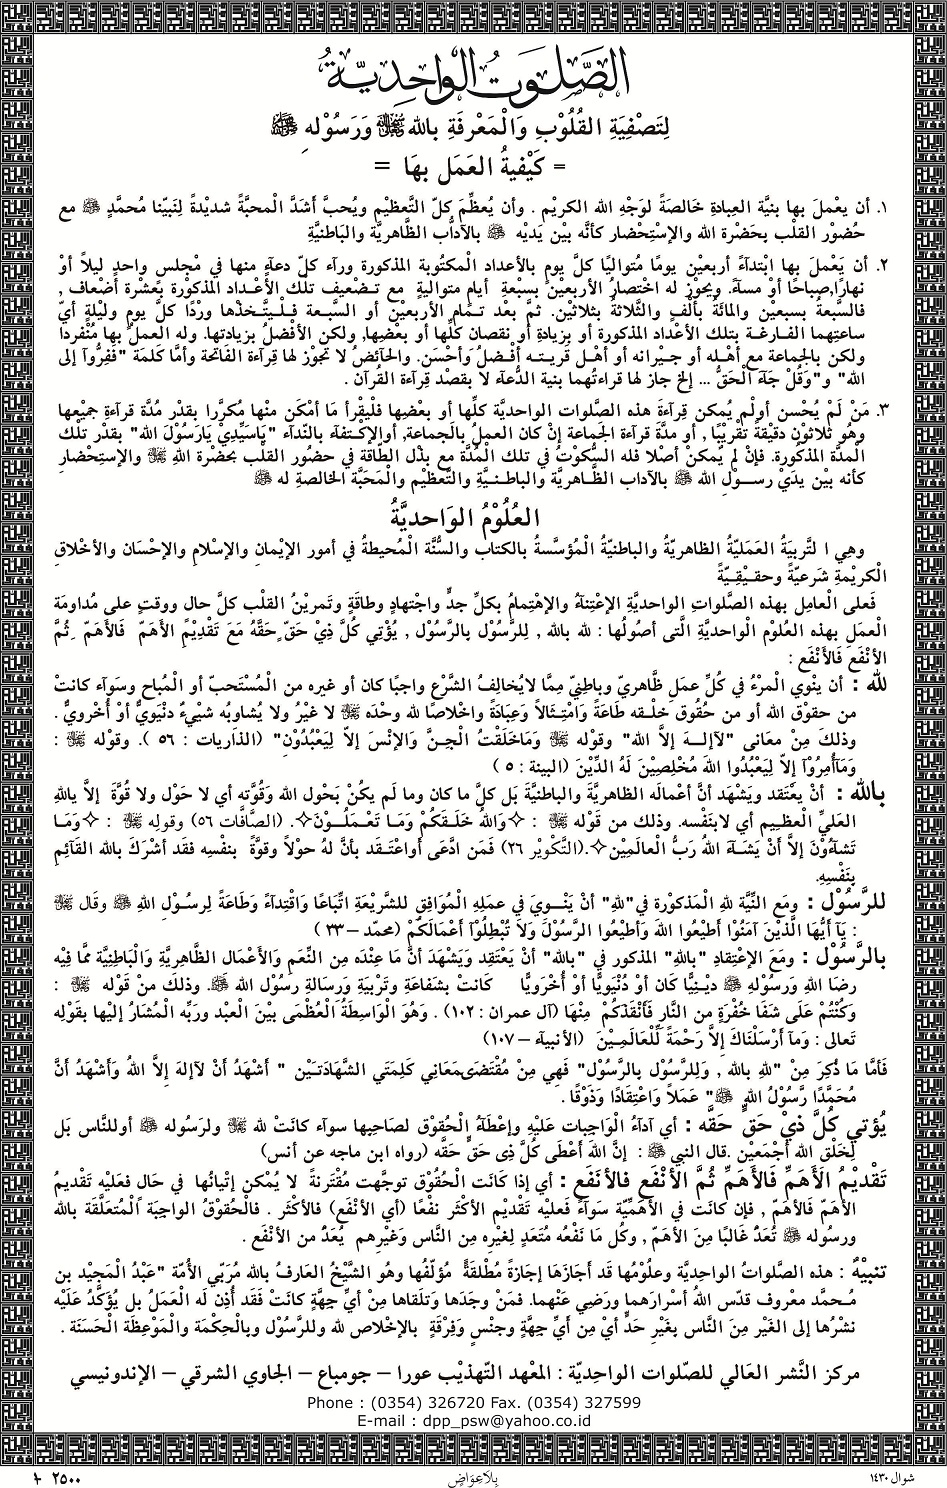 الصَّلَوَتُ الوَاحِدِيَّةُ
لِتَصْفِيَةِ القُلُوْبِ وَالْمَعْرِفَةِ بِالله ﷻ وَرَسُوْلِهِ ﷺ
= كَيْفِيةُ العَمَلِ بِهَا =
١. أن يعْملَ بها بنيَّة العِبادةِ خَالصةً لوَجْهِ الله الكريْم . وأن يُعظِّمَ كلّ التَّعظيْم ويُحبَّ أشَدَّ المحبَّة شديْدةً لِنَبيِّنا مُحمَّدٍ ﷺ مع
حُضوْر القلْب بحَضْرة الله والإستِحْضار كأنَّه بيْن يَديْه ﷺ بالآدابُ الظَّاهريَّة والبَاطنيَّةِ
٢. أن يَعْملَ بها ابْتدآءً أربعيْن يومًا مُتواليًا كلَّ يومٍ بالأعْداد الْمكتُوبة المذكورة ورآء كلّ دعآءٍ منها في مْجلس واحدٍ ليلاً أوْ
نهارًا,صباحًا أوْ مسآءً. ويجوْز له اختصارُ الأربعيْنَ بسبْعة أيامٍ متواليةٍ مع تـضْعيف تلك الأعْـداد المذكورَة بعَشْرة أضْعافٍ ,
فالسَّبعةُ بسبعيْن والمائةُ بألفٍ والثَّلاثةُ بثلاثيْن. ثمَّ بعْد تـمَام الأربعيْن أو السَّبعة فلْيتَّخذْها وردًا كلَّ يومٍ وليْلةٍ أيّ
ساعتِهما الفارغة بتلك الأعْداد المذكورة أو بزيادةٍ أو نقصان كلِّها أو بعْضِها, ولكن الأفضلُ بزيادتها. وله العملُ بها مُنْفردًا
ولكن بالجماعة مع أهْله أو جيْرانه أو أهْل قريته أفْضلُ وأحْسن. والحائضُ لا تجوْز لها قِرآءة الفاتحة وأمَّا كلمَة "ففِرُّوآ إلى
الله" و"وَقُلْ جَآءَ الْحَقُّ ... إلخ جاز لها قراءتُهما بنية الدُّعآء لا بقصْد قِرآءة القُرآن .
٣. مَنْ لَمْ يُحْسن أولْم يُمكن قِرآءةَ هذه الصَّلوات الواحديَّة كلِّها أو بعْضِها فلْيقْرأ مَا أمْكن منْها مُكررًا بقدْر مُدَّة قرآءة جميْعها
وهُو ثلاثوْن دقيْقةً تقْريْبًا , أو مدَّة قرآءة الجَماعة إنْ كان العملُ بالجماعة, أوالإكْتفآء بالنِّدآء "يَاسَيِّدِيْ يَارَسُوْلَ الله" بقدْر تلْك
المدَّة المذكورة. فإنْ لَمْ يُمكنْ أصْلا فله السُّكوْتُ في تلك المُدَّة مع بذْل الطاقة في حضُوْر القلب بحضْرة اللهِ ﷻ والإستِحْضارِ
كأنه بين يديْ رسـوْل الله ﷺ بالآداب الظَّـاهريَّة والباطـنيَّةِ والتَّعظيْم والمَحَبَّة الخالصةِ له ﷺ
العُلُوْمُ الوَاحديَّةُ
وهِي ا لتَّربيَةُ العَمَليَّةُ الظاهريّةُ والباطنيّةُ الْمُؤسَّسةُ بالكتاب والسُّنَّة الْمُحيطةُ في أمور الإيْمانِ والإسْلامِ والإحْسان والأخْلاقِ
الْكريْمةِ شَرعيّةً وحقـيْـقـيّةً
فَعلى الْعامِل بهذه الصَّلوات الواحديَّة الإعْتنآءُ والإهْتمامُ بكلّ جدٍّ واجْتهادٍ وطاقَةٍ وتمريْنُ القلْب كلَّ حال ووقتٍ على مُداومَة
العملِ بهذه العُلوْم الْواحديَّة الَّتى أصوْلُها : لله بالله , لِلرَّسُوْل بالرَّسُوْل , يُؤْتِي كُلَّ ذِيْ حَقٍّ حَقَّهُ مَعَ تَقْدِيْمِ الأَهَمّ فَالأَهَمّ ثُمَّ
الأنْفَعِ فَالأَنْفَع :
لله : أن ينْوي الْمرْءُ في كُلِّ عملٍ ظَاهريّ وباطِنيّ مِمَّا لايُخالِفُ الشَّرْع واجبًا كان أو غيره من الْمُستَحبّ أو الْمُباح وسَوَآء كانتْ
من حقوْق الله أو من حُقُوق خلْقه طَاعَةً وَامْتثَالاً وَعِبَادَةً واخْلاصًا لله وحْدَه ﷻ لا غيْرُ ولا يُشاوبُه شيْئٌ دنْيَويٌّ أوْ أُخْرويٌّ .
وذلكَ مِنْ مَعانِي "لآإِلٰـهَ إلاَّ الله" وقوْله ﷻ وَمَاخَلَقْتُ الْجِـنَّ وَالإِنْسَ إلاَّ لِيَعْبُدُوْنِ" (الذاريات : ٥٦ ). وقوْله ﷻ :
وَمَآأُمِرُوْآ إلاَّ لِيَعْبُدُوا اللهَ مُخْلِصِيْنَ لَهُ الدِّيْنَ (البينة : ٥ )
بِالله : أنْ يعْتقد ويَشْهَد أنَّ أعْمالَه الظاهريَّة والباطنيَّةَ بل كلَّ ما كان وما لَم يكُنْ بَحَوْل الله وقُوَّته أي لا حَوْل ولا قُوَّةَ إلاَّ باللهِ
العَليِّ الْعظِـيم أي لا بنَفْسه. وذلك من قوْله ﷻ : وَاللهُ خَلَـقَكُمْ وَمَا تَعْمَلُـوْنَ. (الصافَّات ٥٦) وقوله ﷻ : وَمَـا
تشآءُوْنَ إلاَّ أنْ يَشَـآءَ اللهُ رَبُّ العالَمِيْن.(التَّكْوِيْر ٢٦) فَمن ادَّعَى أواعْتـقَد بأنَّ لهُ حوْلاً وقوَّةً بنفْسِه فقد أشرَك بالله القَآئِمِ
بنَفْسِهِ.
للرَّسُوْل : ومَع النِّيَّة للهِ الْمَذكورَة في"للهِ" أنْ يَنْـوِيَ في عمَلِه الْمُوَافِقِ لِلشَّرِيْعَةِ اتِّبَاعًا وَاقْتِدَآءً وَطَاعَةً لِرسُـوْل اللهِ ﷺ وقال ﷻ
: يَآ أَيُّهَا الَّذِيْنَ آمَنُوْا أَطِيعُوا اللهَ وأَطِيْعُوا الرَّسُوْلَ وَلاَ تُبْطِلُوْآ أَعْمَالَكُمْ (محمَّد – ٣٣ )
بِالرَّسُوْل : ومَعَ الإعْتِقادِ "باللهِ" المذكور في "بالله" أنْ يَعْتَقِد ويَشْهَدَ أنَّ مَا عِنْدَه مِن النِّعَمِ والأعْمال الظَّاهريَّة والْبَاطنيَّة ممَّا فيْه
رضَا اللهِ وَرَسُوْلِهِ ﷺ ديْنِيًّا كان أوْ دُنْيَويًّا أوْ أُخْرَويًّا كانَتْ بشَفَاعَةِ وتَرْبيَةِ وَرسَالةِ رسُوْل الله ﷺ. وذلك منْ قوْله ﷻ :
وَكُنْتُمْ عَلَى شَفَا حُفْرَةٍ من النَّارِ فَأَنْقَذَكُمْ مِنْهَا (آل عمران : ١٠٢) . وَهُوَ الْوَاسِطَةُ العُظْمَى بيْنَ العبْد وربِّه الْمُشَارُ إليْها بقوْله
تعالى : وَمَآ أَرْسَلْنَاكَ إلاَّ رَحْمَةً لِّلْعَالَمِيْنَ (الأنبيآء – ١٠٧)
فَأمَّا مَا ذُكِرَ مِنْ "للهِ بالله , وَلِلرَّسُوْل بالرَّسُوْل" فَهِيَ مِنْ مُقْتَضَى مَعَانِي كَلِمَتَي الشَّهَادَتَـيْنِ " أَشْهَدُ أَنْ لآإِلهَ إِلاَّ اللهُ وَأَشْهَدُ أَنَّ
مُحَمَّدًا رَسُوْلُ اللهِ ﷺ" عَمَلاً وَاعْتِقَادًا وَذَوْقًا .
يُؤْتي كُلَّ ذِيْ حَقٍّ حَقَّه : أي آدَآءُ الْوَاجبَات عَلَيْهِ وإعْطَآءُ الْحُقُوْق لصَاحِبِها سوَآء كانَتْ لله ﷻ ولرَسُوله ﷺ أوللنَّاسِ بَل
لِخَلْقِ الله أجْمَعِيْن .قال النبي ﷺ : إنَّ الله أعْطَى كُلَّ ذِى حَقٍّ حَقَّه (رواه ابن ماجه عن أنس)
تَقْدِيْمُ الأَهَمِّ فَالأَهَمِّ ثُمَّ الأَنْفَعِ فالأَنْفَعِ : أي إذا كَانَت الْحُقُوْق توجَّهت مُقْترنَةً لا يُمْكِن إتْيانُها في حَالٍ فعَليْه تقْديْمُ
الأهَمِّ فَالأهَمِّ , فإن كانَت في الأهَمِّيَّة سَوَآءً فَعليْه تقديْم الأكْثرِ نفْعًا (أي الأنْفَع) فالأكْثر . فالْحُقوْقُ الواجبَةُ الْمتعلِّقة بالله
ورسوْله ﷺ تُعدُّ غَالبًا مِنَ الأهَمّ , وكُل مَا نَفْعُه مُتَعَدٍّ لِغيْرِه مِن النَّاس وَغيْرِهِم يُعَدُّ من الأنْفَع .
تنبيْهٌ : هذه الصَّلواتُ الواحديَّة وعلُومُها قد أجَازَها إجَازَةً مُطْلقَةً مُؤلِّفُها وهُو الشَّيْخُ العَارفُ بالله مُرَبِّي الأُمَّة "عَبْدُ الْمَجِيْد بن
مُـحمَّد معْروف قدّس اللهُ أسْرارَهما ورَضي عنْهما. فمَنْ وجَدَها وتَلقاهَا مِنْ أيِّ جِهَةٍ كانَتْ فَقَد أُذِن لَه العَمَلُ بل يُؤكَّدُ عَلَيْه
نشْرُها إلى الغَيْر مِنَ النَّاس بغَيْر حَدٍّ أيْ مِن أيِّ جِهَةٍ وجنْسٍ وَفِرْقَةٍ بالإخْلاصِ لله وللرَّسُوْل وبالْحِكْمَة والْمَوْعِظَةِ الْحَسَنَة .
مركز النَّشر العَالي للصّلوات الواحِديَّة : المعْهد التَّهذيْب عورا – جومباع – الجاوي الشرقي – الإندونيسي
Phone : (0354) 326720 Fax. (0354) 327599
E-mail : dpp_psw@yahoo.co.id
شوال ١٤٣٠
بِلاَعِوَاضٍ
٢٥٠٠